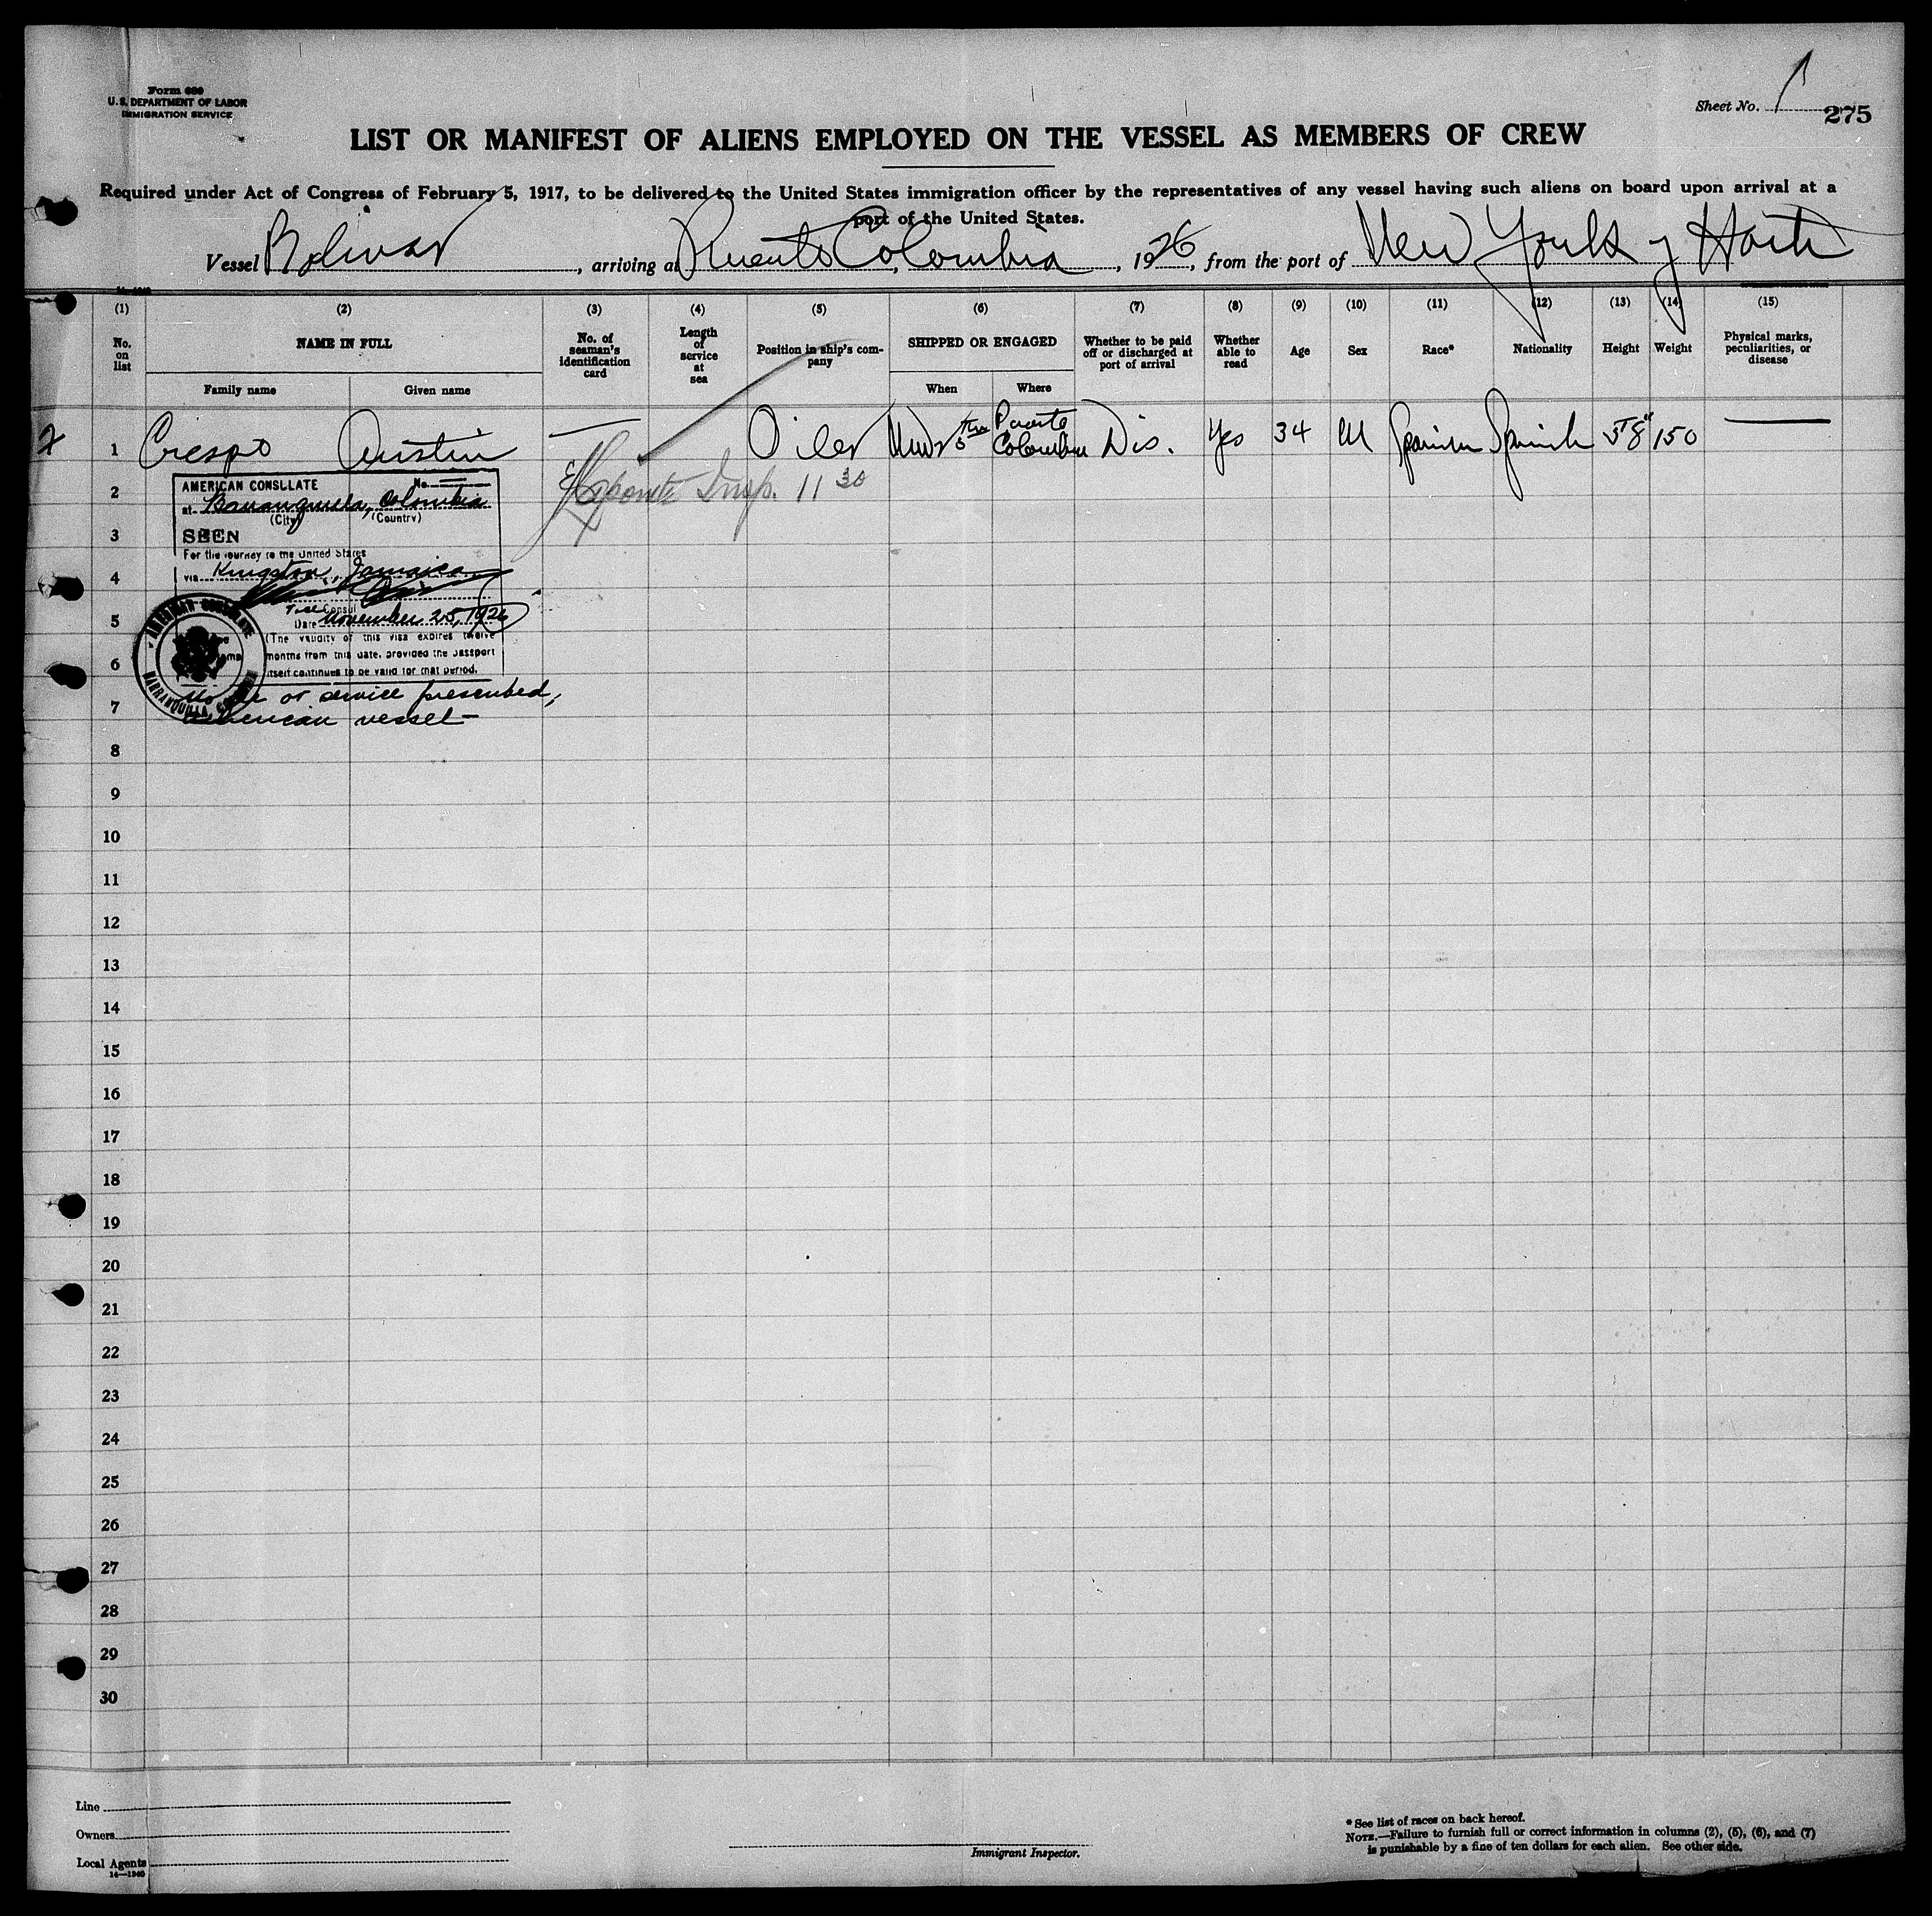 Form 680
U. S. DEPARTMENT OF LABOR
IMMIGRATION SERVICE
Sheet No. 1
275
LIST OR MANIFEST OF ALIENS EMPLOYED ON THE VESSEL AS MEMBERS OF CREW
Required under Act of Congress of February 5, 1917, to be delivered to the United States immigration officer by the representatives of any vessel having such aliens on board upon arrival at a
port of the United States.
Vessel Bolivar, arriving at Puerto Colombia, 1926, from the port of New York y Haiti
(1) (2) (3) (4) (5) (6) (7) (8) (9) (10) (11) (12) (13) (14) (15)
No. on list
NAME IN FULL
Family name
Given name
No. of seaman's identification card
Length of service at sea
Position in ship's company
SHIPPED OR ENGAGED
When
Where
Whether to be paid off or discharged at port of arrival
Whether able to read
Age
Sex
Race*
Nationality
Height
Weight
Physical marks, peculiarities, or disease
2
1 Crespo Austin Oiler Puerto Colombia Dis. Yes 34 M Spanish Spanish 5 8" 150
Insp. 11 30
AMERICAN CONSULATE No.
at Barranquilla, Colombia
(City) (Country)
SEEN
For the journey to the United States
via Kingston, Jamaica
Vice Consul
Date November 25, 1926
(The validity of this visa expires twelve
months from this date, provided the passport
itself continues to be valid for that period.
AMERICAN CONSULATE
BARRANQUILLA, COLOMBIA
No fee or service prescribed,
American vessel
2
3
4
5
6
7
8
9
10
11
12
13
14
15
16
17
18
19
20
21
22
23
24
25
26
27
28
29
30
Line
Owners
Local Agents
14—1240
Immigrant Inspector.
* See list of races on back hereof.
NOTE.—Failure to furnish full or correct information in columns (2), (5), (6), and (7)
is punishable by a fine of ten dollars for each alien. See other side.